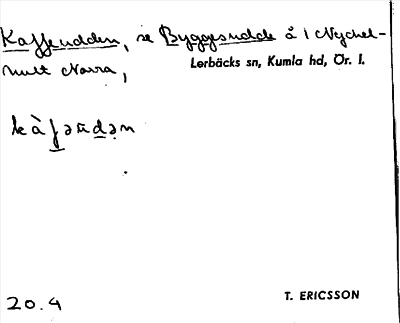 Kaffeudden, se Byggesudde å i Nyckel-
hult Norra,
Lerbäcks sn, Kumla hd, Ör. l.
T. ERICSSON
20.4